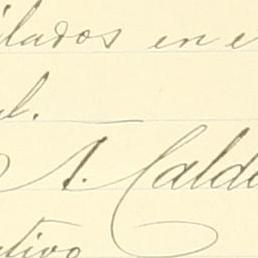 ilados en e
al.
A. Calde
ativo